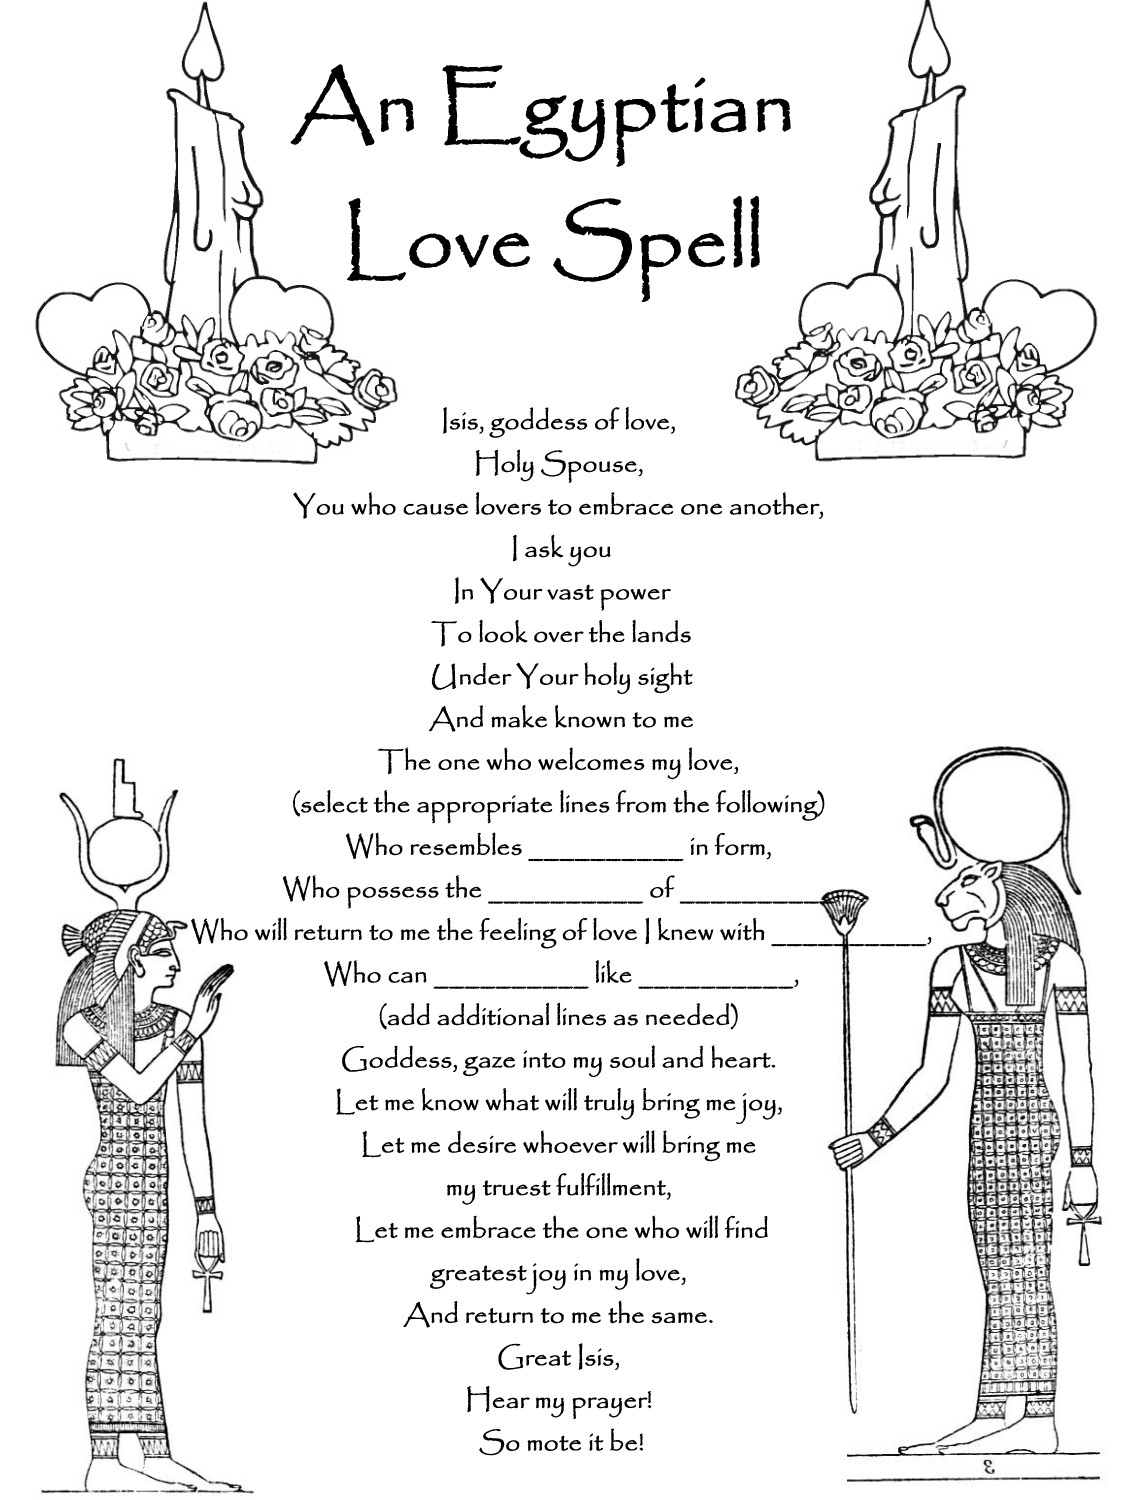 An Egyptian
Love Spell
Isis, goddess of love,
Holy Spouse,
You who cause lovers to embrace one another,
I ask you
In Your vast power
To look over the lands
Under Your holy sight
And make known to me
The one who welcomes my love,
(select the appropriate lines from the following)
Who resembles __________ in form,
Who possess the __________ of __________
Who will return to me the feeling of love I knew with __________,
Who can __________ like __________,
(add additional lines as needed)
Goddess, gaze into my soul and heart.
Let me know what will truly bring me joy,
Let me desire whoever will bring me
my truest fulfillment,
Let me embrace the one who will find
greatest joy in my love,
And return to me the same.
Great Isis,
Hear my prayer!
So mote it be!